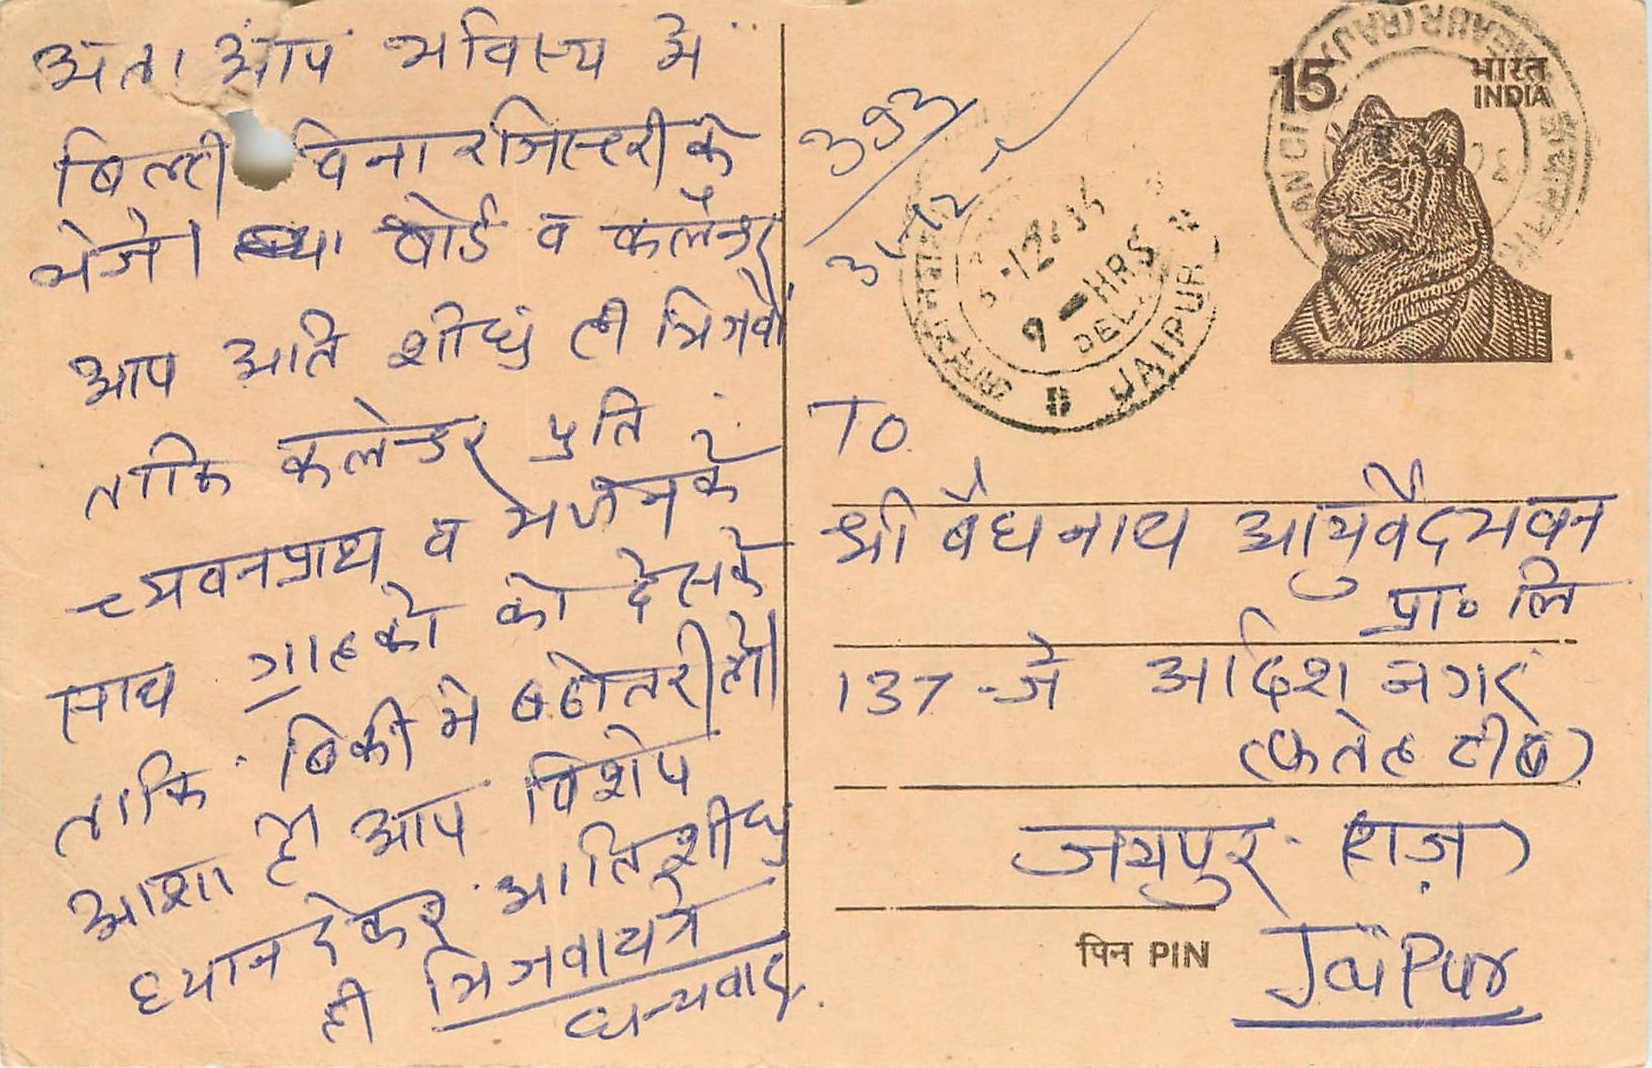 अतः आप भविस्य में
बिल्टी बिना रजिस्टरी के
भेजे। बोर्ड व कलेन्डर
आप अति शीघ्र ही भिजवावें
ताकि कलेन्डर प्रति
च्यवनप्राश व के
साथ ग्राहकों को दे सकें
ताकि बिक्री में बढोतरी हो।
आशा है आप विशेष
ध्यान देकर अति शीघ्र
ही भिजवायेंगे
धन्यवाद
15
भारत
INDIA
5.12.
9-HRS
DEL.
B JAIPUR
TO
श्री बैधनाथ आयुर्वेद भवन
प्रा० लि
137-जे आदर्श नगर
(फतेह टीबा)
जयपुर (राज)
पिन PIN
JaiPur